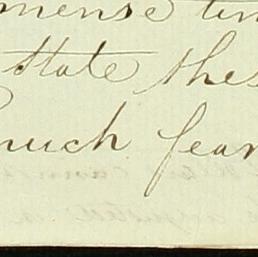 mense tim
state thes
much fear